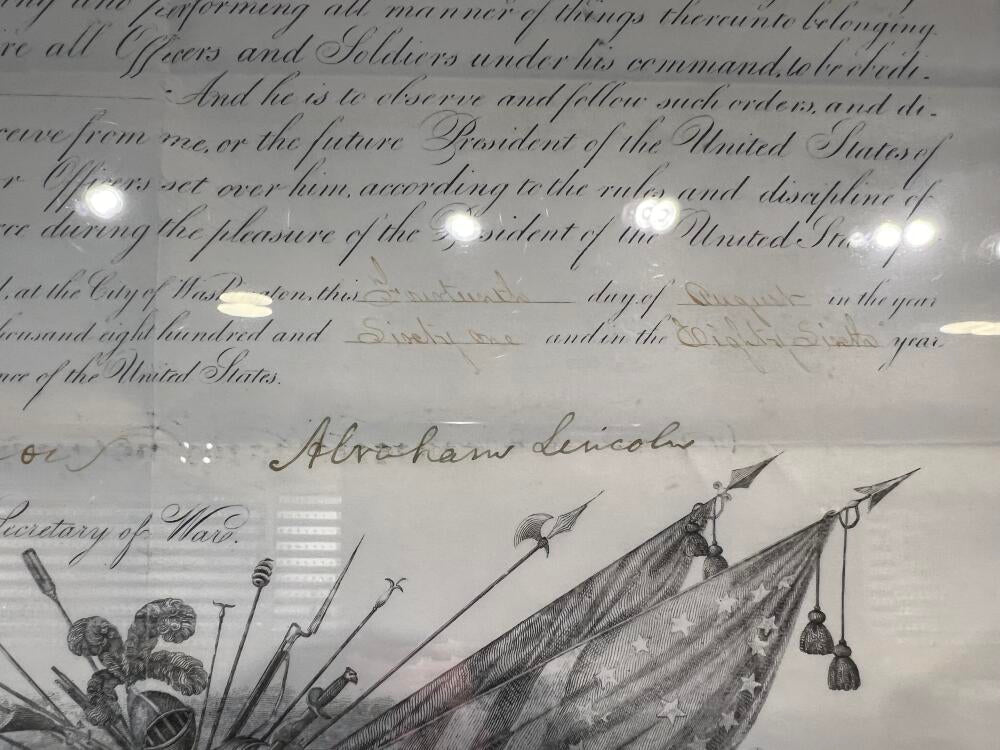 and performing all manner of things thereunto belonging.
re all Officers and Soldiers under his command, to be obedi-
And he is to observe and follow such orders, and di-
ceive from me, or the future President of the United States of
r Officers set over him, according to the rules and discipline of
rce during the pleasure of the President of the United Sta
d, at the City of Washington, this Fourteenth day of August in the year
housand eight hundred and Sixty one and in the Eighty Sixth year
nce of the United States.
Abraham Lincoln
Secretary of War.